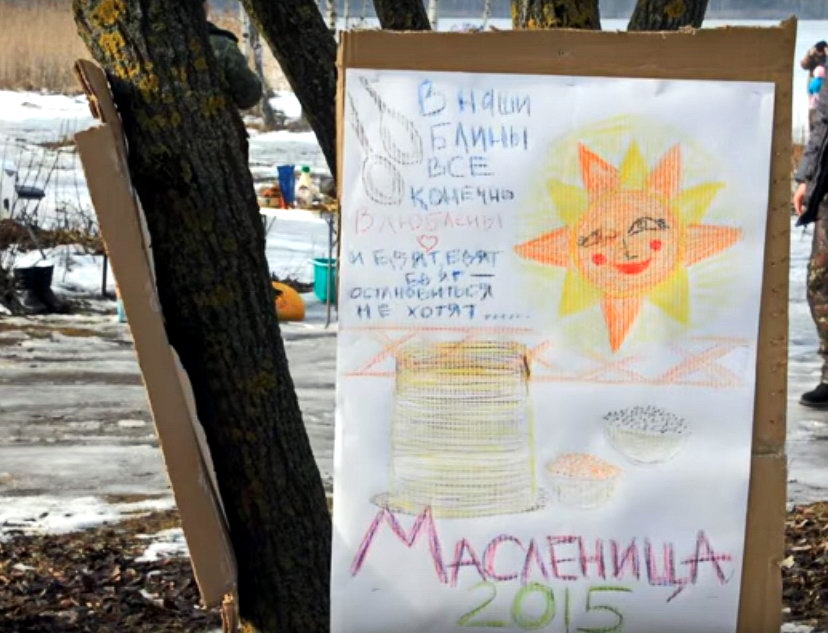 В НАШИ
БЛИНЫ
ВСЕ
КОНЕЧНО
ВЛЮБЛЕНЫ
И ЕДЯТ, ЕДЯТ
ЕДЯТ —
ОСТАНОВИТЬСЯ
НЕ ХОТЯТ......
МАСЛЕНИЦА
2015